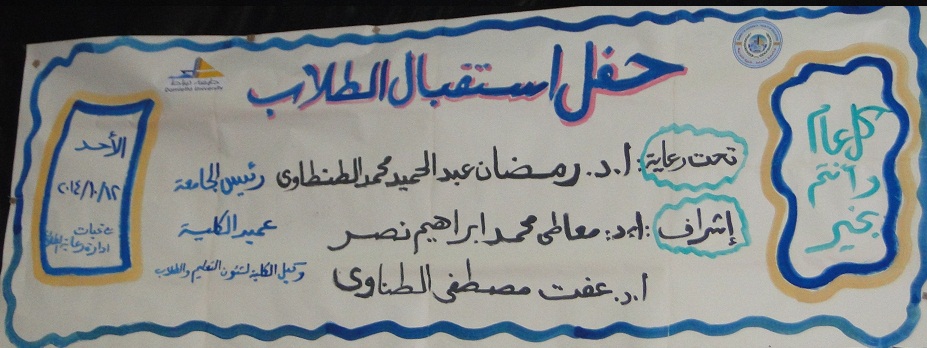 حفل استقبال الطلاب
جامعة دمياط
Damietta University
كل عام
وأنتم
بخير
تحت رعاية: أ.د. رمضان عبدالحميد محمد الطنطاوى رئيس الجامعة
إشراف: أ.د: معاطى محمد ابراهيم نصر عميد الكلية
أ.د. عفت مصطفى الطناوى وكيل الكلية لشئون التعليم والطلاب
الأحد
٢٠١٤/١٠/١٢
مع تحيات
ادارة رعاية